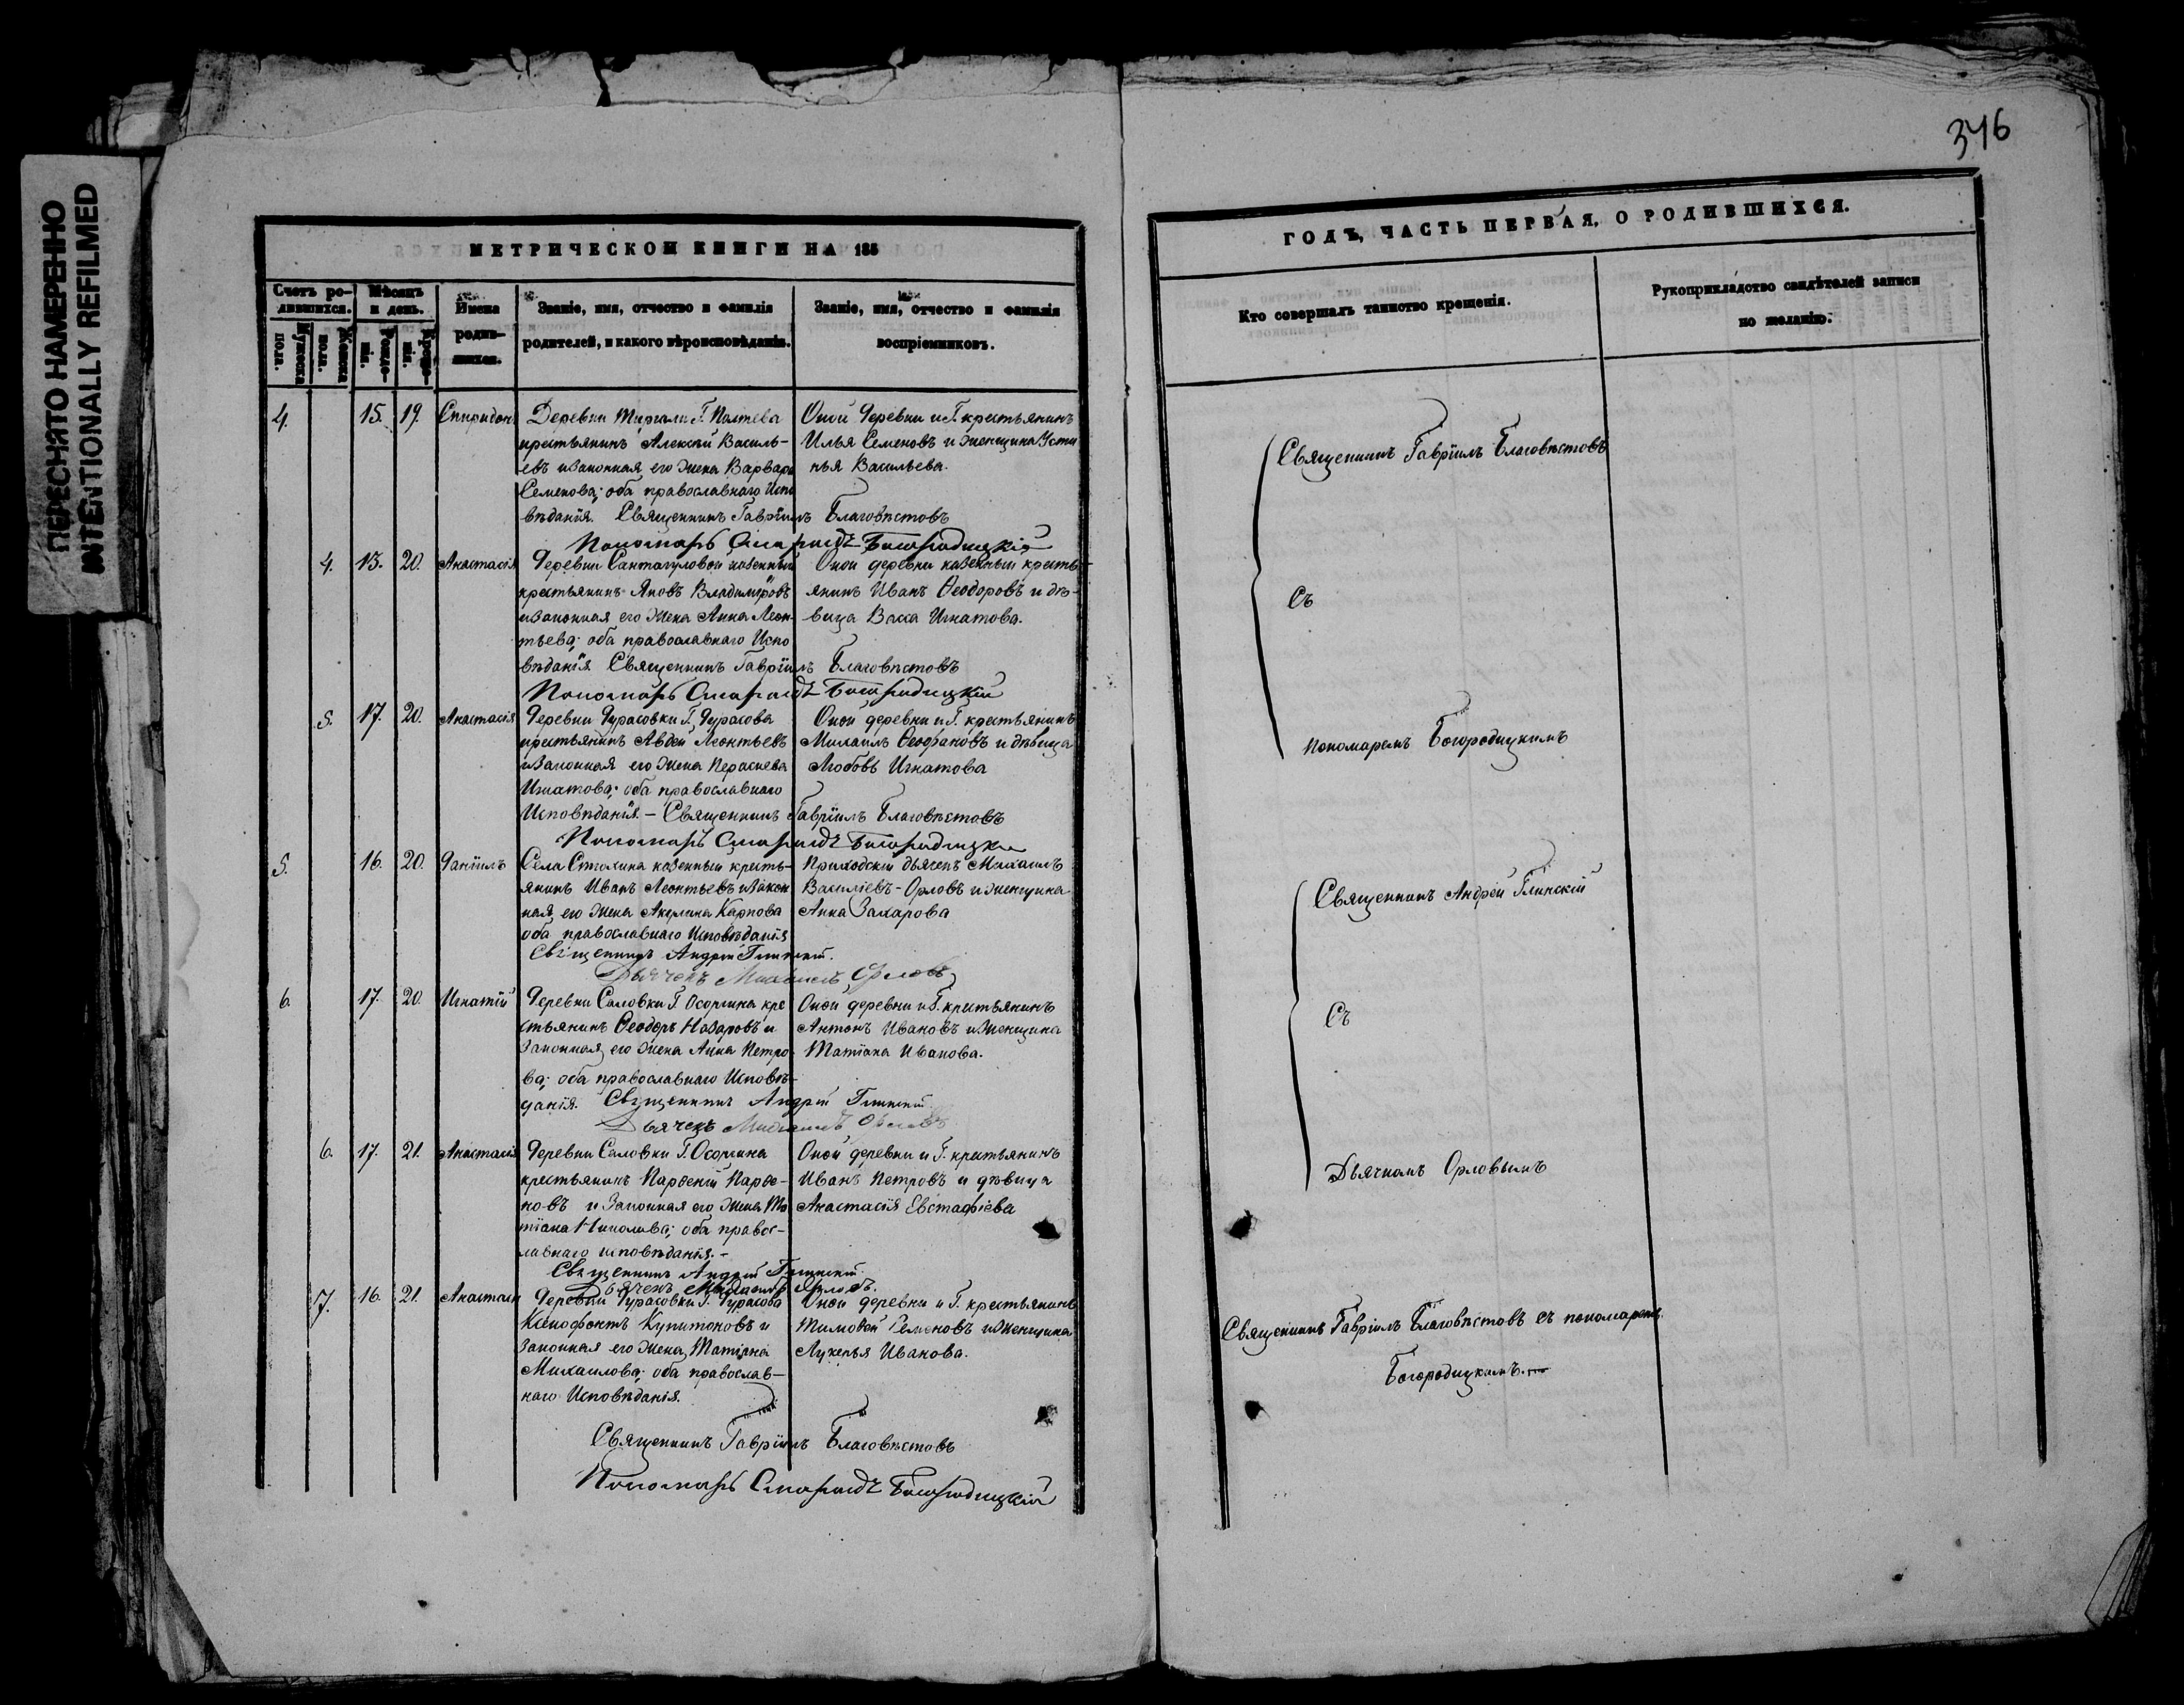 ПЕРЕСНЯТО НАМЕРЕННО
INTENTIONALLY REFILMED
346
МЕТРИЧЕСКОЙ КНИГИ НА 185
Счетъ ро-
дившихся.
Мѣсяцъ
и день.
Мужеска
пола.
Женска
пола.
Рожде-
нія.
Креще-
нія.
Имена
родив-
шихся.
Званіе, имя, отчество и фамилія
родителей, и какого вѣроисповѣданія.
Званіе, имя, отчество и фамилія
воспріемниковъ.
4. 15. 19. Спиридонъ
Деревни Г. Полтева
крестьянинъ Алексѣй Василь-
евъ и законная его жена Варвара
Семенова; оба православнаго Испо
вѣданія. Священникъ Гавріилъ Благовѣстовъ
Оной деревни и Г. крестьянинъ
Илья Семеновъ и женщина Усти
нья Васильева.
Пономарь Богородицкій
4. 13. 20. Анастасія
Деревни казенный
крестьянинъ Яковъ Владиміровъ
и законная его жена Анна Леон-
тьева; оба православнаго Испо
вѣданія Священникъ Гавріилъ Благовѣстовъ
Оной деревни казенный кресть-
янинъ Иванъ Ѳеодоровъ и дѣ-
вица Васса Игнатова.
Пономарь Богородицкій
5. 17. 20. Анастасія
Деревни Дурасовки Г. Дурасова
крестьянинъ Авдей Леонтьевъ
и законная его жена
Игнатова; оба православнаго
Исповѣданія. – Священникъ Гавріилъ Благовѣстовъ
Оной деревни и Г. крестьянинъ
Михаилъ Ѳеофановъ и дѣвица
Любовь Игнатова
Пономарь Богородицкій
5. 16. 20. Даніилъ
Села казенный кресть-
янинъ Иванъ Леонтьевъ и закон
ная его жена Акулина Карпова
оба православнаго Исповѣданія
Священникъ Андрей Глинскій.
Приходскій дьячекъ Михаилъ
Василіевъ-Орловъ и женщина
Анна Захарова
Дьячекъ Михаилъ Орловъ
6. 17. 20. Игнатій
Деревни Саловки Г. Осоргина кре
стьянинъ Ѳеодоръ Назаровъ и
законная его жена Анна Петро
ва; оба православнаго Исповѣ-
данія. Священникъ Андрей Глинскій.
Оной деревни и Г. крестьянинъ
Антонъ Ивановъ и женщина
Татіана Иванова.
Дьячекъ Михаилъ Орловъ
6. 17. 21. Анастасія
Деревни Саловки Г. Осоргина
крестьянинъ Парѳеній Парѳе-
новъ и законная его жена Та
тіана Николаева; оба правос-
лавнаго исповѣданія. –
Священникъ Андрей Глинскій.
Оной деревни и Г. крестьянинъ
Иванъ Петровъ и дѣвица
Анастасія Евстафіева
Дьячекъ Михаилъ Орловъ.
7. 16. 21. Анастасія
Деревни Дурасовки Г. Дурасова
Ксенофонтъ и
законная его жена Татіана
Михаилова; оба православ-
наго Исповѣданія.
Оной деревни и Г. крестьянинъ
Тимоѳей Семеновъ и женщина
Лукерья Иванова.
Священникъ Гавріилъ Благовѣстовъ
Пономарь Богородицкій
ГОДЪ, ЧАСТЬ ПЕРВАЯ, О РОДИВШИХСЯ.
Кто совершалъ таинство крещенія.
Рукоприкладство свидѣтелей записи
по желанію.
Священникъ Гавріилъ Благовѣстовъ
Съ
пономаремъ Богородицкимъ
Священникъ Андрей Глинскій
Съ
Дьячкомъ Орловымъ
Священникъ Гавріилъ Благовѣстовъ съ пономаремъ
Богородицкимъ.